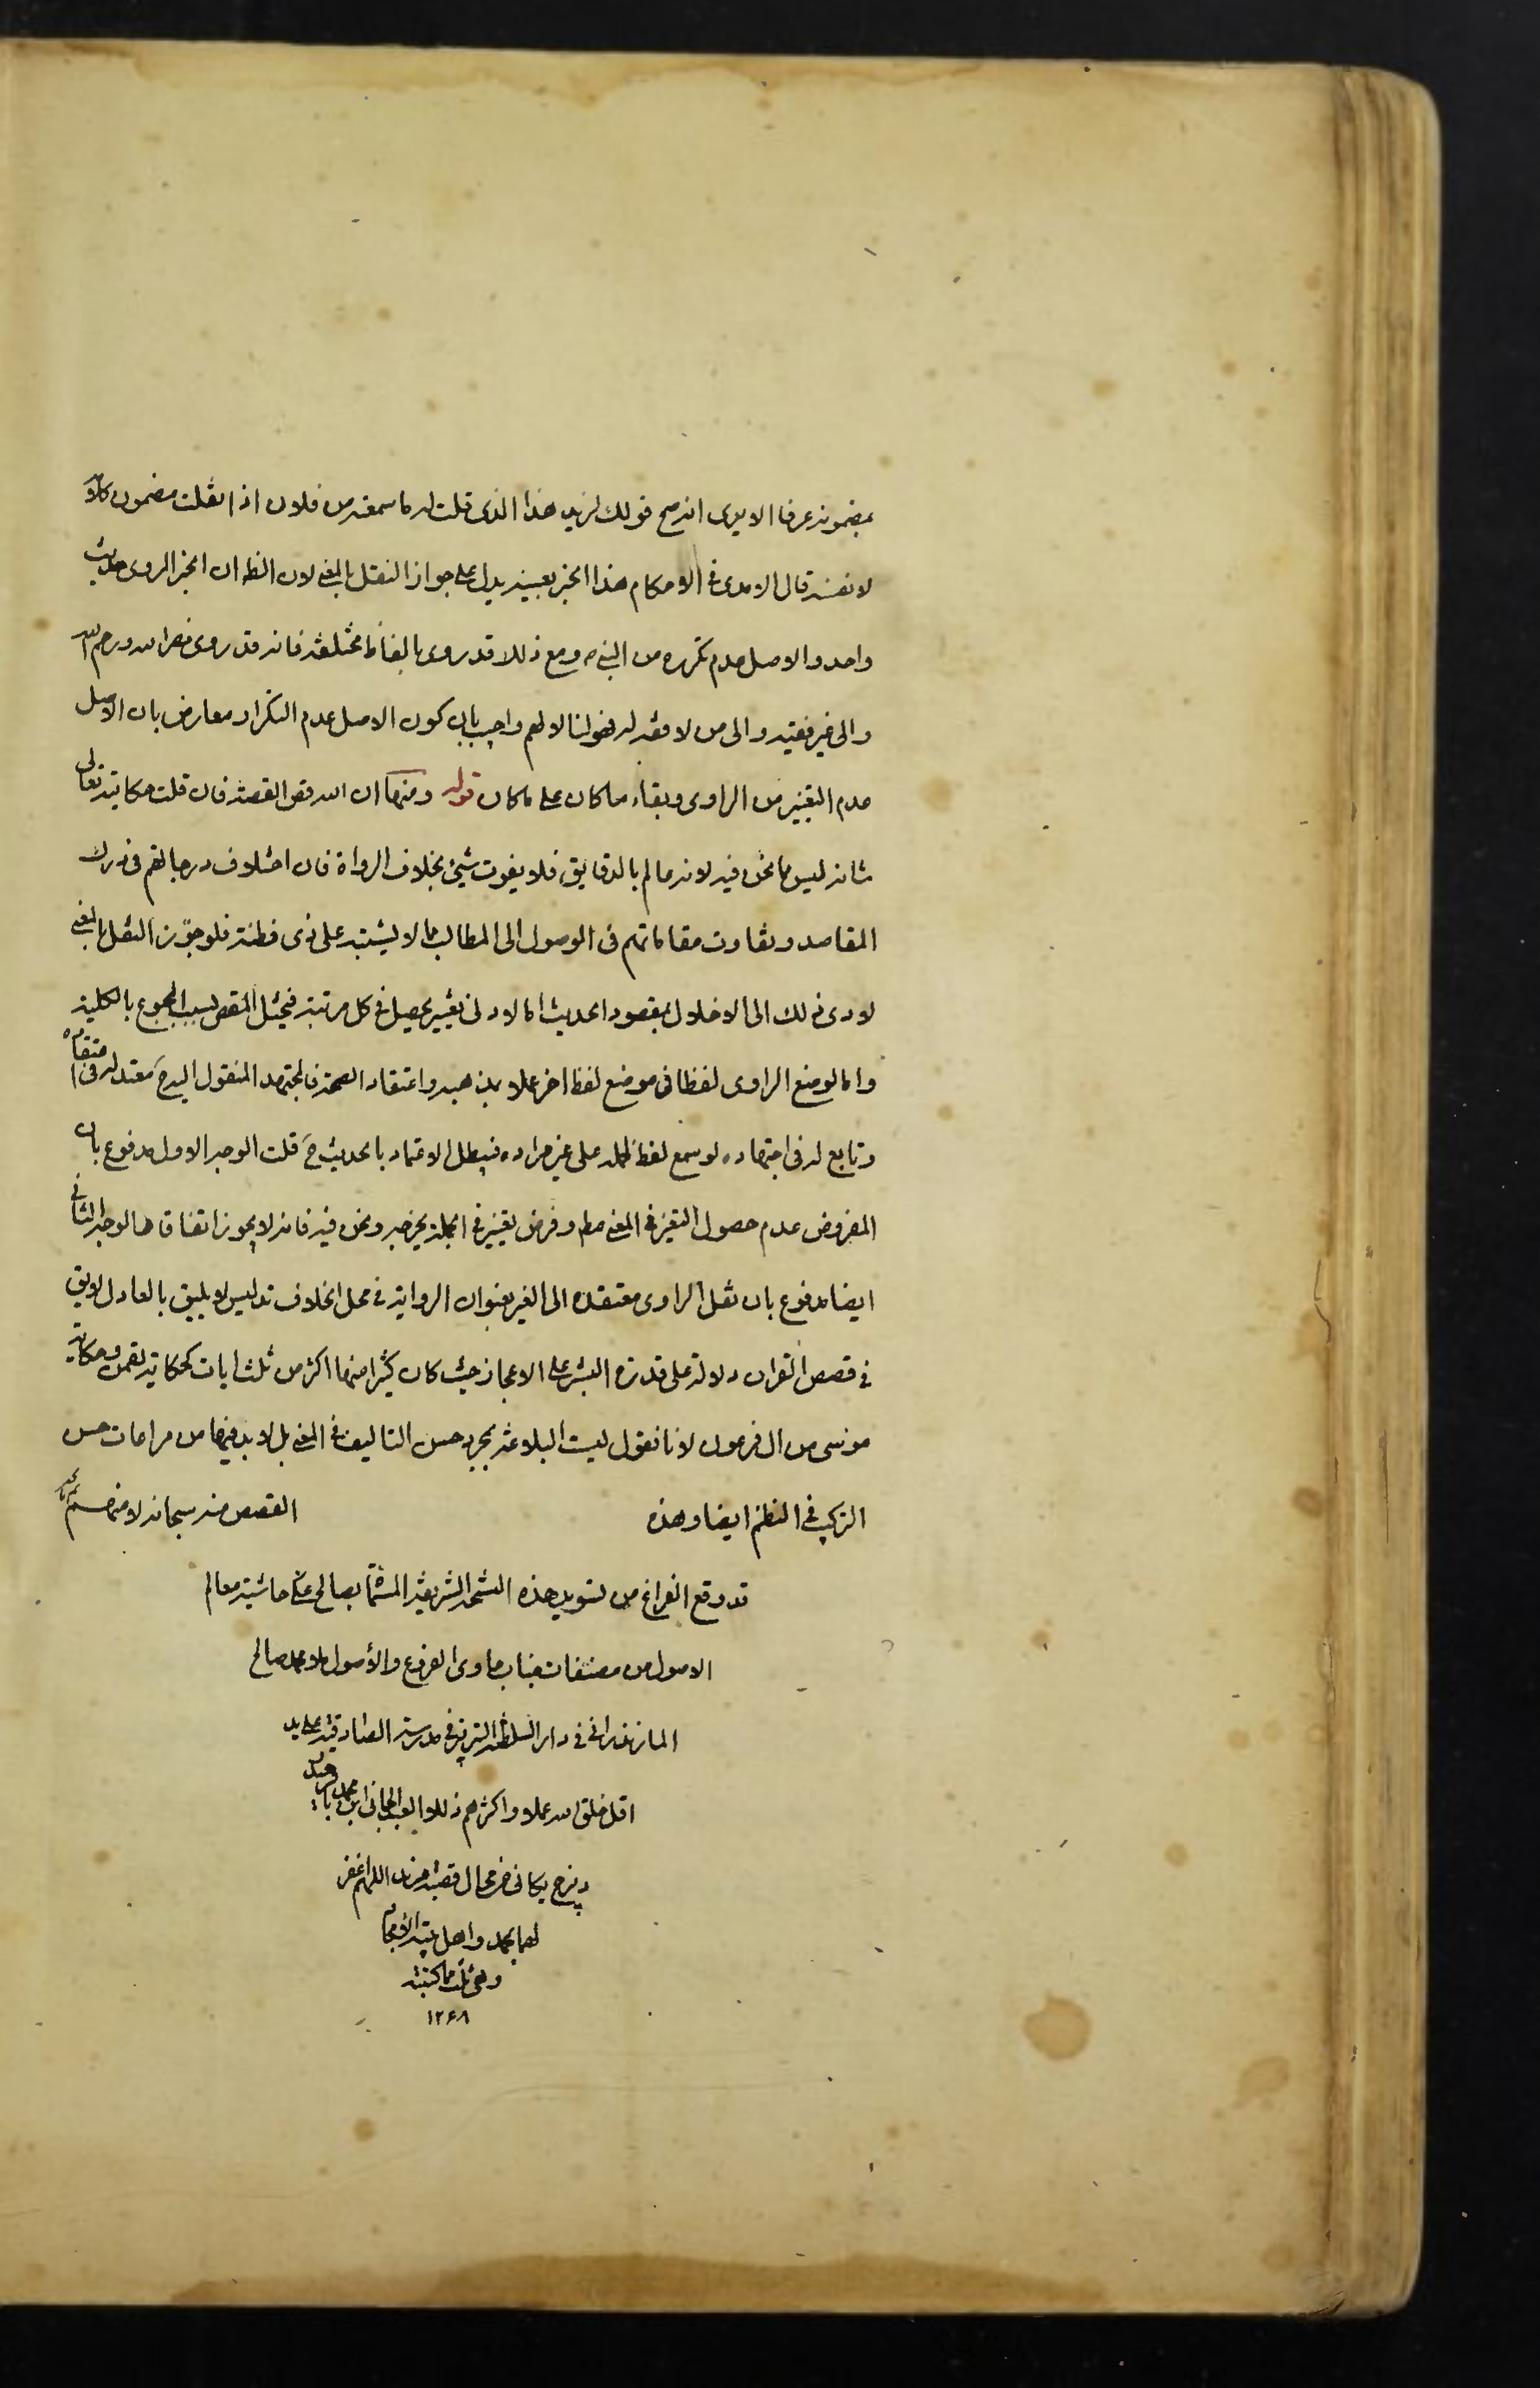 بمضمونه عرفا الا يرى انه صح قولك لزيد هذا الذى قلت له ما سمعته من فلان اذا نقلت مضمون كلامه
لا نفسه قال الامدى فى الاحكام هذا الخبر بعينه يدل على جواز النقل بالمعنى لان الظ ان الخبر المروى حديث
واحد والاصل عدم تكرره من النبى ص ومع ذلك قد روى بالفاظ مختلفة فانه قد روى نضر الله ورحم الله
والى غير فقيه والى من لا فقه له فقولنا لا لهم واجيب بان كون الاصل عدم التكرار معارض بان الاصل
عدم التغيير من الراوى وبقاء ما كان على ما كان قوله ومنها ان الله قص القصة فان قلت حكايته تعالى
شانه ليس مما نحن فيه لانه عالم بالدقايق فلا يفوت شئ بخلاف الرواة فان اختلاف درجاتهم فى درك
المقاصد وتفاوت مقاماتهم فى الوصول الى المطالب مما لا يشتبه على ذى فطنة فلو جوّزن النقل بالمعنى
لادى ذلك الى الاخلال بمقصود الحديث اما لادنى تغيير يحصل فى كل مرتبة فيختل المقصود بسبب المجموع بالكلية
واما لوضع الراوى لفظا فى موضع لفظ اخر عملا بمذهبه واعتقاد الصحة فالمجتهد المنقول اليه ح مقلد له فى اعتقاده
وتابع له فى اجتهاده لو سمع لفظه لحمله على غير مراده فيبطل الاعتماد بالحديث ح قلت الوجه الاول مدفوع بان
المفروض عدم حصول التغير فى المعنى مط وفرض تغيير فى الجملة يخرجه ونحن فيه فانه لا يجوز اتفاقا والوجه الثانى
ايضا مدفوع بان نقل الراوى معتقده الى الغير بعنوان الرواية فى محل الخلاف تدليس لا يليق بالعادل لا يق
فى قصص القران دلالة على قدرة البشر على الاعجاز حيث كان كثيرا منها اكثر من ثلث ايات كحكاية لقمن وحكاية
موسى من ال فرعون لانا نقول ليست البلاغة بمجرد حسن التاليف فى المعنى بل لا بد فيها من مراعات حسن
التركيب فى النظم ايضا وهذه القصص منه سبحانه لا منهم
قد وقع الفراغ من تسويد هذه النسخة الشريفة المسماة بصالح على حاشية معالم
الاصول من مصنفات جناب حاوى الفروع والأصول ملا محمد صالح
المازندرانى فى دار السلطنة التبريز فى مدرسة الصادقية على يد
اقل خلق الله عملا واكثرهم زللا العبد الجانى ابن محمد
اللهم اغفر
لهما بمحمد واهل بيته الامجاد
وهى ثلث ما كتبته
١٢۶٨